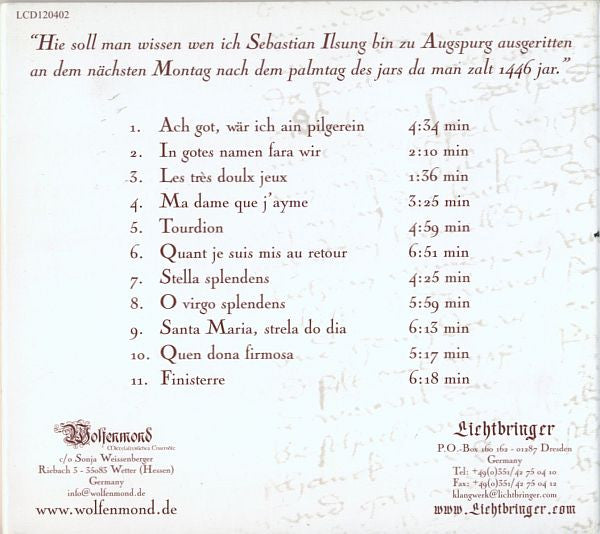 LCD120402
“Hie soll man wissen wen ich Sebastian Ilsung bin zu Augspurg ausgeritten
an dem nächsten Montag nach dem palmtag des jars da man zalt 1446 jar.”
1. Ach got, wär ich ain pilgerein 4:34 min
2. In gotes namen fara wir 2:10 min
3. Les très doulx jeux 1:36 min
4. Ma dame que j'ayme 3:25 min
5. Tourdion 4:59 min
6. Quant je suis mis au retour 6:51 min
7. Stella splendens 4:25 min
8. O virgo splendens 5:59 min
9. Santa Maria, strela do dia 6:13 min
10. Quen dona firmosa 5:17 min
11. Finisterre 6:18 min
Wolfenmond
c/o Sonja Weissenberger
Riebach 3 - 35083 Wetter (Hessen)
Germany
info@wolfenmond.de
www.wolfenmond.de
Lichtbringer
P.O.-Box 160 162 - 01287 Dresden
Germany
Tel: +49(0)351/42 75 04 10
Fax: +49(0)351/42 75 04 12
klangwerk@lichtbringer.com
www.Lichtbringer.com